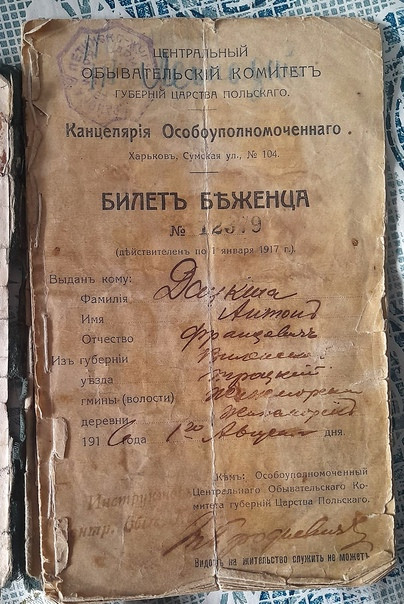 ЦЕНТРАЛЬНЫЙ
ОБЫВАТЕЛЬСКІЙ КОМИТЕТЪ
ГУБЕРНІЙ ЦАРСТВА ПОЛЬСКАГО.
Канцелярія Особоуполномоченнаго.
Харьковъ, Сумская ул., № 104.
БИЛЕТЪ БѢЖЕНЦА
№ 12379
(дѣйствителенъ по 1 января 1917 г.)
Выданъ кому:
Фамилія
Имя Антонъ
Отчество Францевичъ
Изъ губерніи Виленской
уѣзда Троцкій
гмины (волости)
деревни
1916 года 1го Августа дня.
Кѣмъ: Особоуполномоченный
Центральнаго Обывательскаго Ко-
митета губерній Царства Польскаго.
Видомъ на жительство служить не можетъ